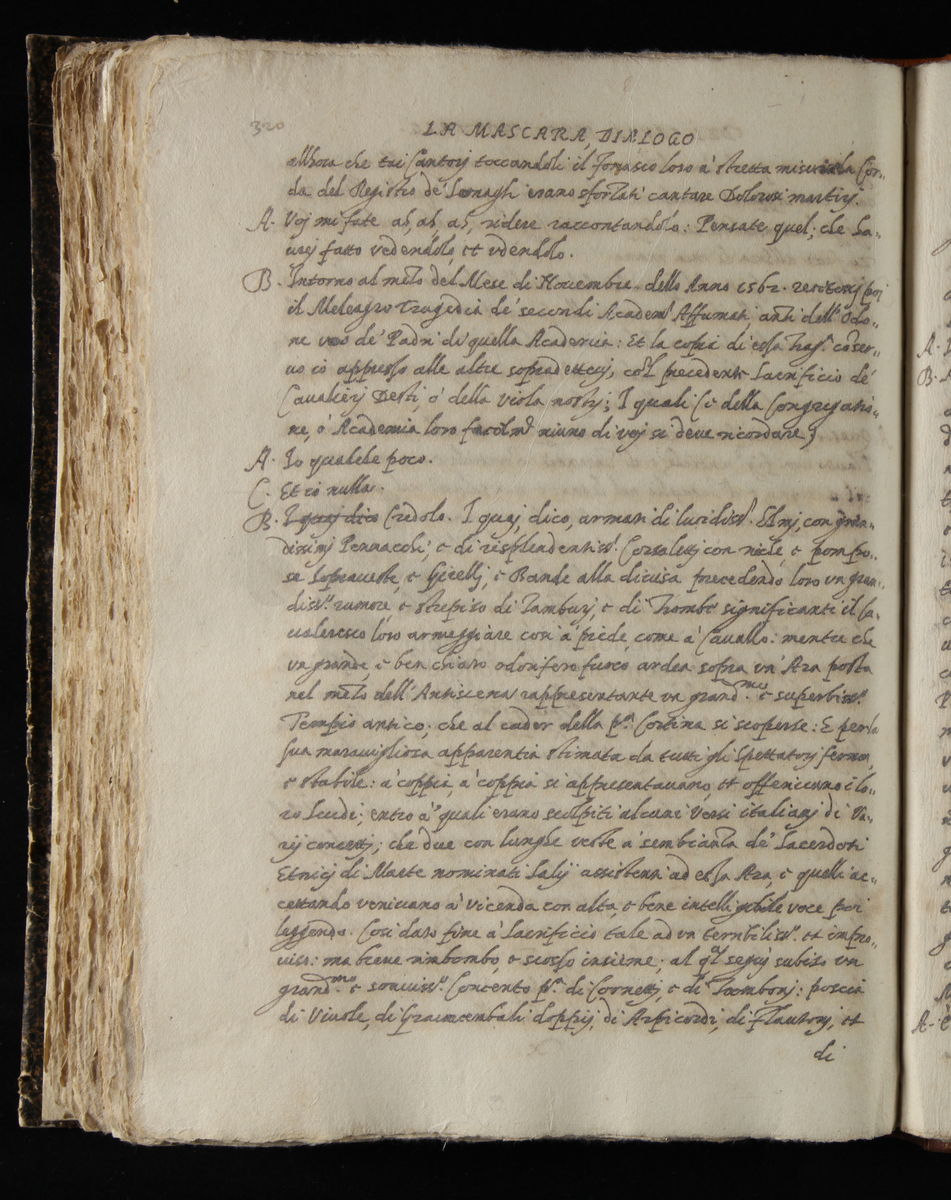 320
LA MASCARA, DIALOGO
allhora che tai Cantorj toccandoli il loro à stretta la Cor-
da del Registro de erano sforzati cantare Dolorosi martirj.
A. Voj mi fate ah, ah, ah, ridere raccontandolo: Pensate quel; che ha-
urej fatto vedendolo, et vdendolo.
B. Intorno al mezo del Mese di Nouembre dello Anno 1562. recitorno poi
il Meleagro Tragedia de' secondi Academ. Affumati, anzi dell' Odo-
ne vno de' Padri di quella Academia: Et la copia di essa Trag. coser-
uo io appresso alle altre sopradettej, col precedente Sacrificio de'
Cavalierj Desti, ò della Viola nostrj; I quali (e della Congregatio-
ne, ò Academia loro niuno di voj si deue ricordare)
A. Io qualche poco.
C. Et io nulla.
B. I quaj dico Credolo. I quaj dico, armati di lucidiss. Elmj, con gran-
dissimj Pennacchi; e di risplendentiss. Corsaletti con ricle, e pompo-
se Soprauesti, e Girelli, e Bande alla diuisa precedendo loro vn gran-
diss. rumore, e strepito di Tamburj, e di Trombe significanti il Ca-
ualeresco loro armeggiare così à piede, come à Cauallo: mentre che
vn grande, e ben chiaro odorifero fuoco ardea sopra vn' Ara posta
nel mezo dell' Antiscena rappresentante vn grandmo. e superbiss.
Tempio antico; che al cader della pa. Cortina si scoperse: E per la
sua marauigliosa apparentia stimata da tutti gli Spettatorj fermo,
e stabile: à coppia, à coppia si appresentauano, et offeriuano i lo-
ro Scudi; entro à quali erano scolpiti alcuni Versi italianj di Va-
rij concetti; che due con lunghe veste à sembianza de' Sacerdoti
Etnicj di Marte nominati Salij assistenti ad essa Ara, e quelli ac-
cettando veniuano à vicenda con alta, e bene intelligibile voce poi
leggendo. Così dato fine à Sacrificio tale ad vn terribiliss. et impro-
uiso: ma breue rimbombo, e scosso insieme; al qual seguj subito vn
grandmo. e soauiss. Concento pa. di Cornetti, e di Trombonj: poscia
di Viuole, di Grauicembali doppij, di Arpicordi, di Flautonj, et
di